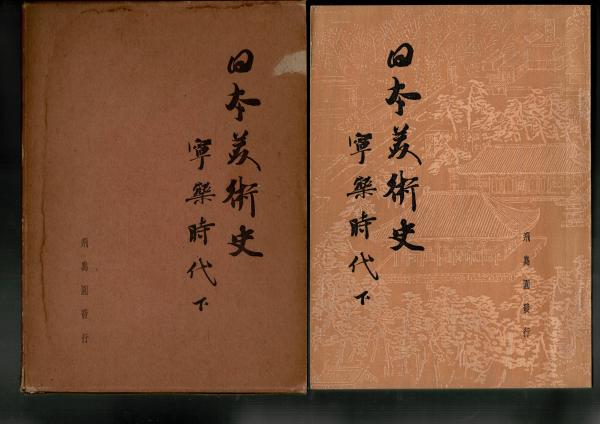 日本美術史
寧樂時代下
飛鳥園發行
日本美術史
寧樂時代下
飛鳥園發行